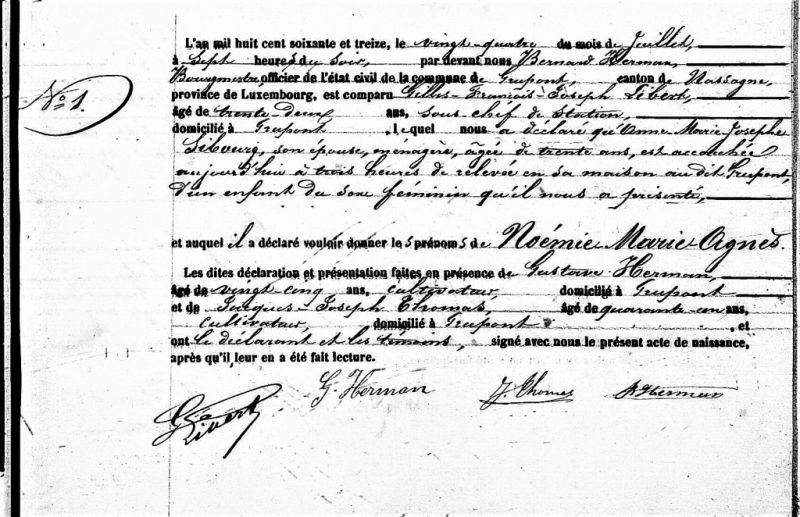 L'an mil huit cent soixante et treize, le vingt-quatre du mois de Juillet,
à Sept heures du Soir, par devant nous Bernard Herman,
Bourgmestre officier de l'état civil de la commune de Grupont, canton de Nassogne,
N° 1.
province de Luxembourg, est comparu Gillus-François-Joseph Libert,
âgé de trente-deux ans, sous chef de Station,
domicilié à Grupont, lequel nous a déclaré qu'Anne Marie Josephe
son épouse, ménagère, âgée de trente ans, est accouchée
aujourd'hui à trois heures de relevée en sa maison au dit Grupont,
d'un enfant du sexe féminin qu'il nous a présenté,
et auquel il a déclaré vouloir donner les prénoms de Noémie Marie Agnès.
Les dites déclaration et présentation faites en présence de Gustave Herman,
âgé de vingt cinq ans, cultivateur, domicilié à Grupont
et de Jacques-Joseph Thomas, âgé de quarante un ans,
cultivateur, domicilié à Grupont, et
ont le déclarant et les témoins, signé avec nous le présent acte de naissance,
après qu'il leur en a été fait lecture.
G. Herman J. Thomas B Herman
Libert